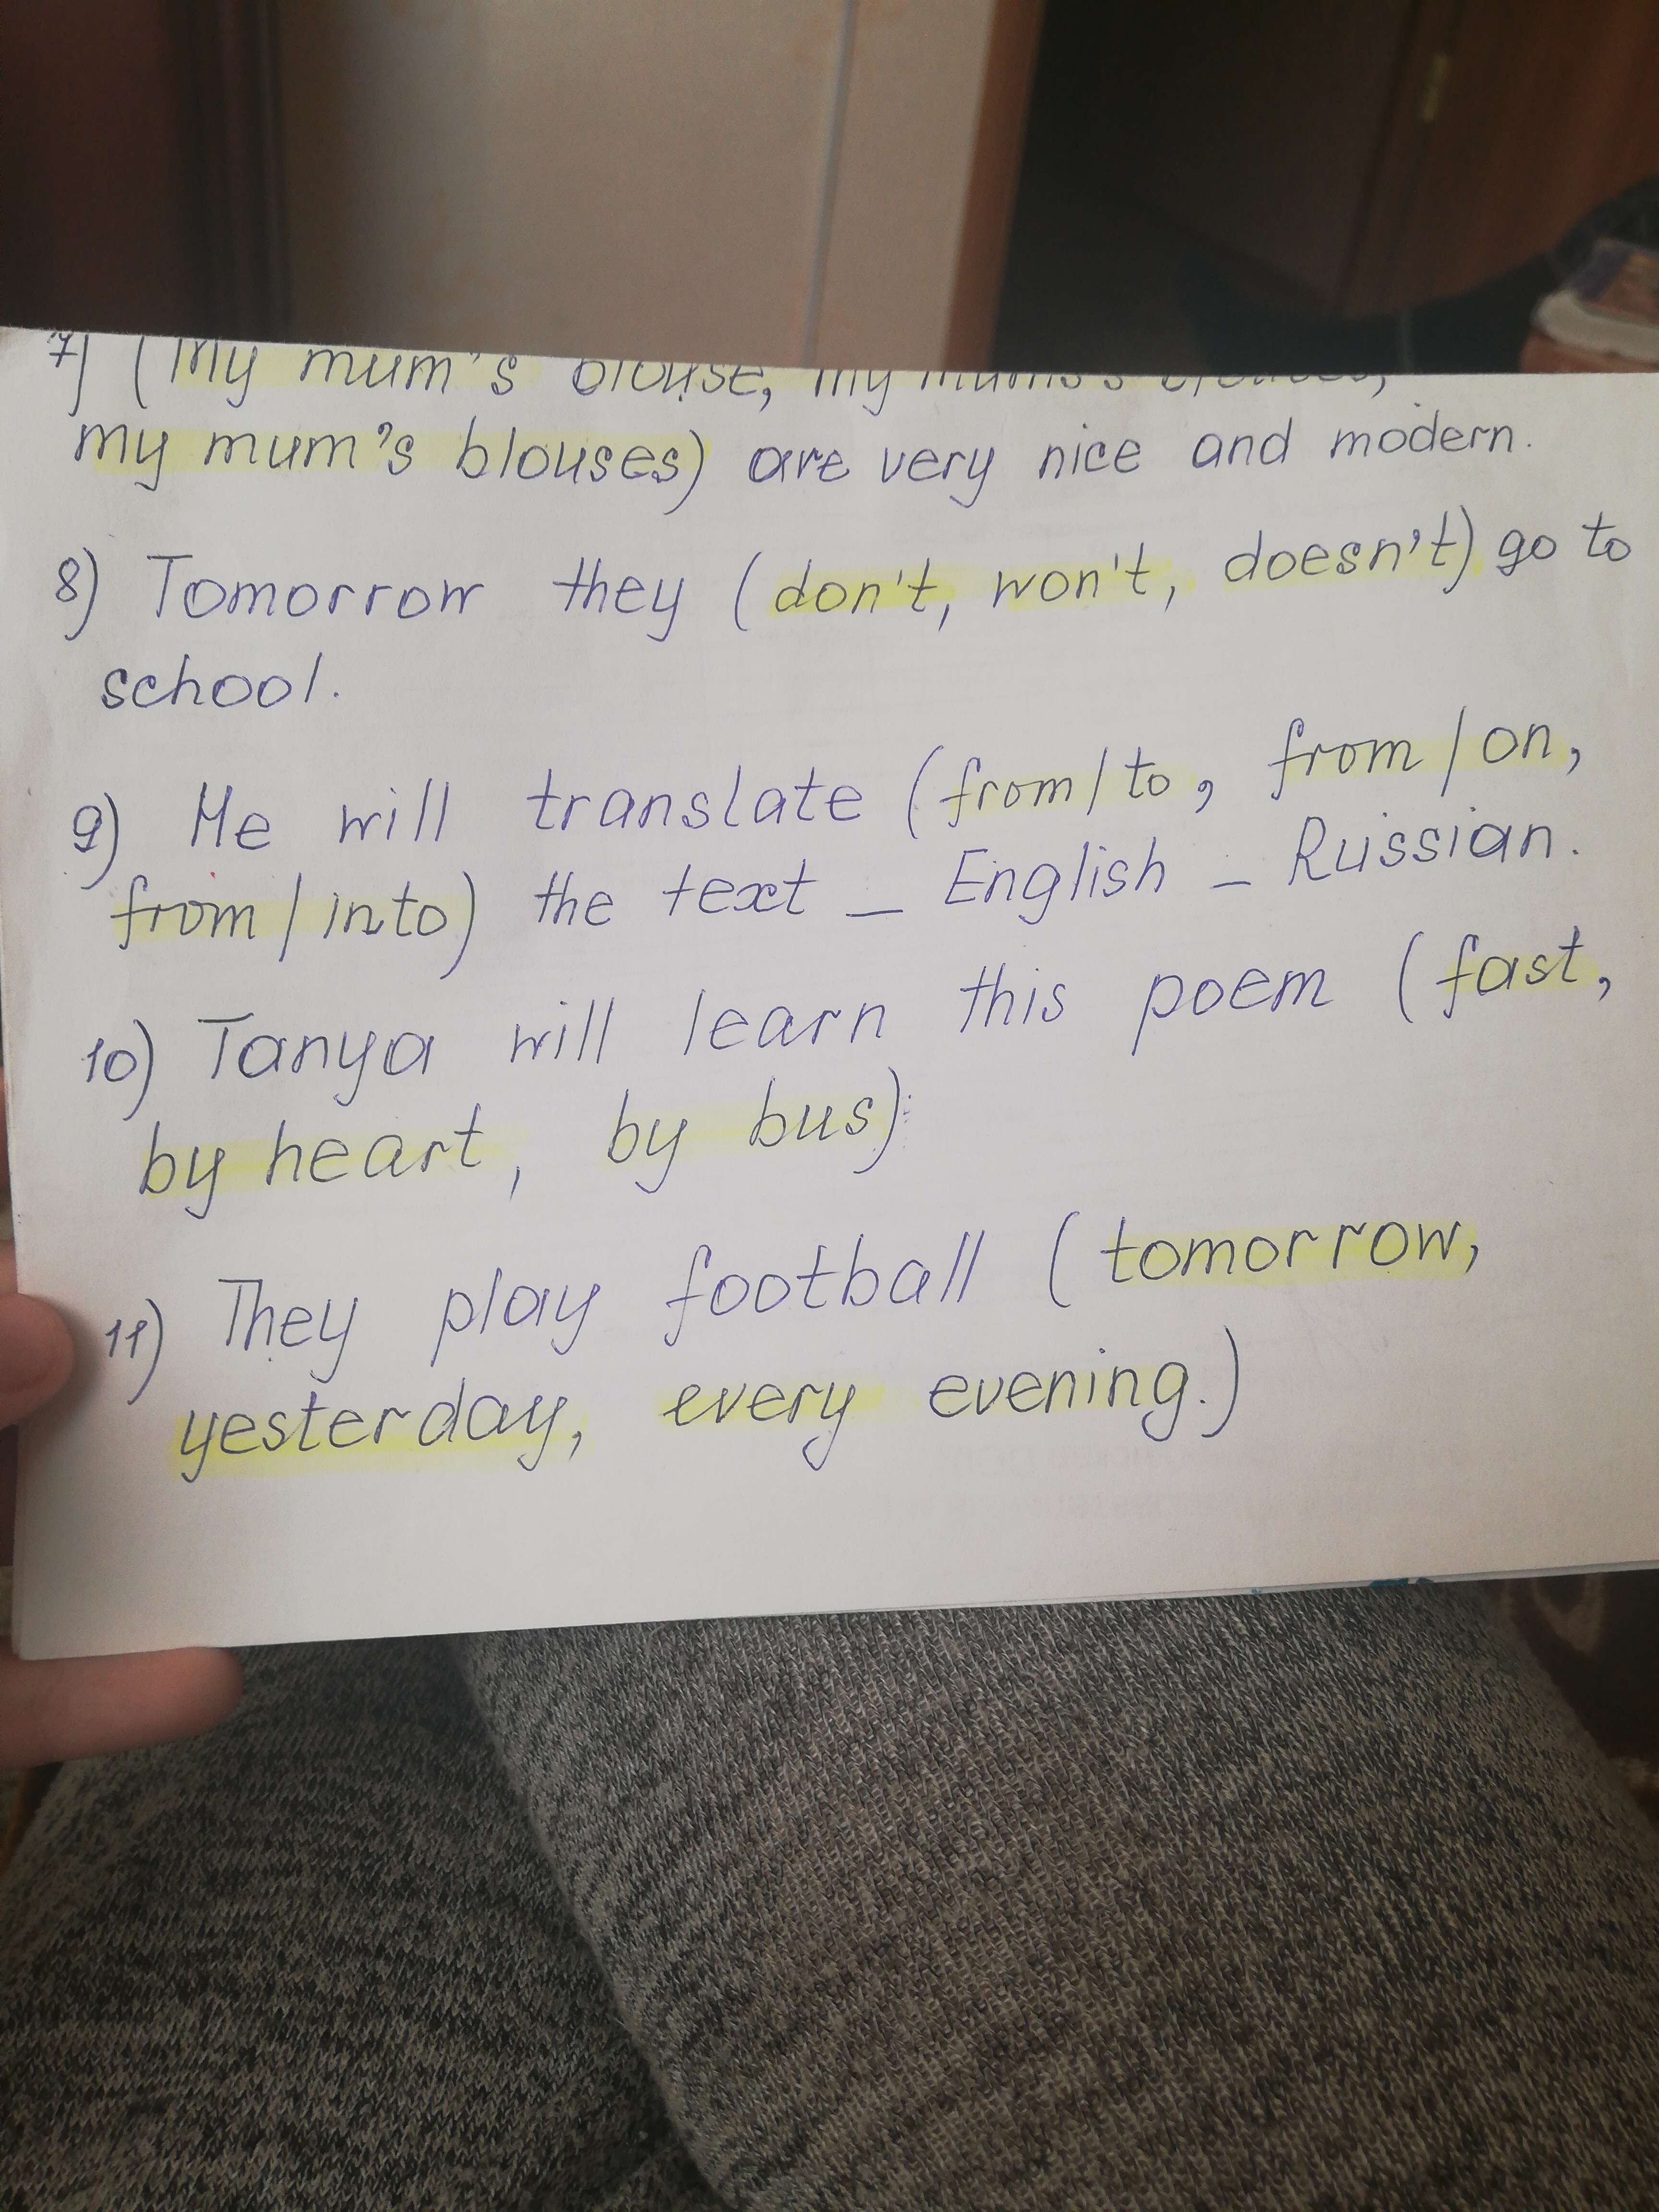 7) (My mum's blouse, my mums's blouses,
my mum's blouses) are very nice and modern.
8) Tomorrow they (don't, won't, doesn't) go to
school.
9) He will translate (from/to, from/on,
from/into) the text _ English _ Russian.
10) Tanya will learn this poem (fast,
by heart, by bus).
11) They play football (tomorrow,
yesterday, every evening.)